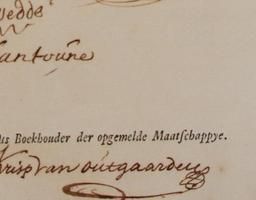 vedds
antoúne
ús Boekhouder der opgemelde Maatschappye.
Krisp van outgaarden